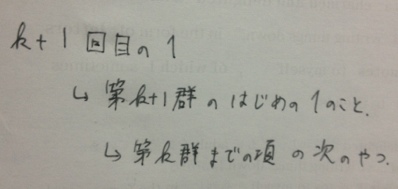 k+1回目の1
↳ 第k+1群のはじめの1のこと.
↳ 第k群までの項の次のやつ.